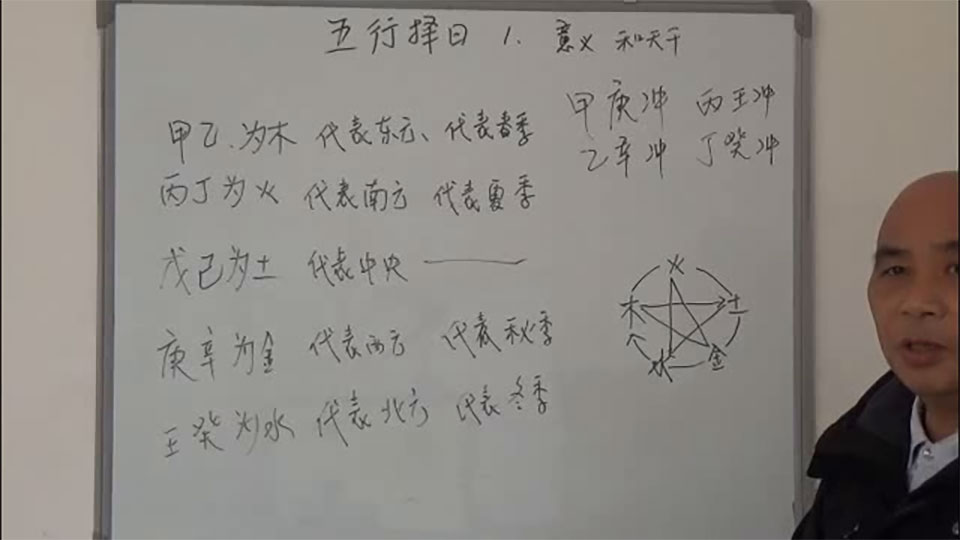 五行择日 1. 意义 和天干
甲庚冲 丙王冲
乙辛冲 丁癸冲
甲乙.为木 代表东方、代表春季
丙丁为火 代表南方 代表夏季
戊己为土 代表中央 ——
庚辛为金 代表西方 代表秋季
王癸为水 代表北方 代表冬季
火
木 土
水 金